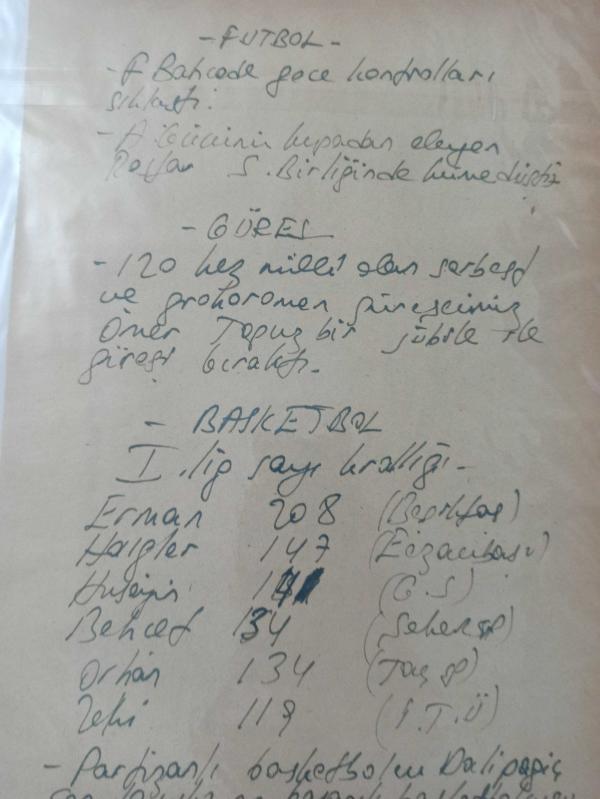 - FUTBOL -
- F Bahcede gece kontrolları
sıklaştı.
- A Gücünü kupadan eleyen
S. Birliğinde küme düştü
- GÜREŞ
- 120 kez millî olan serbest
ve grokoromen güreşcimiz
Ömer Topuz bir jübile ile
güreşi bıraktı.
- BASKETBOL
I. lig sayı krallığı -
Erman 208 (Beşiktaş)
Haigler 147 (Eczacıbaşı)
Hüseyin (G.S)
Behcet 134
Orhan 134
Zeki 119 (İ.T.Ü)
- Partizanlı basketbolcu Dalipagiç